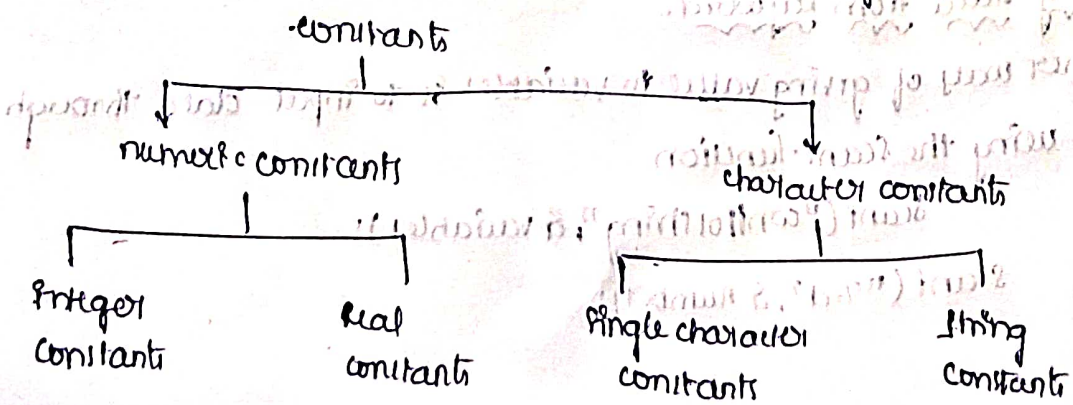 constants
numeric constants
character constants
Integer
constants
Real
constants
single character
constants
string
constants